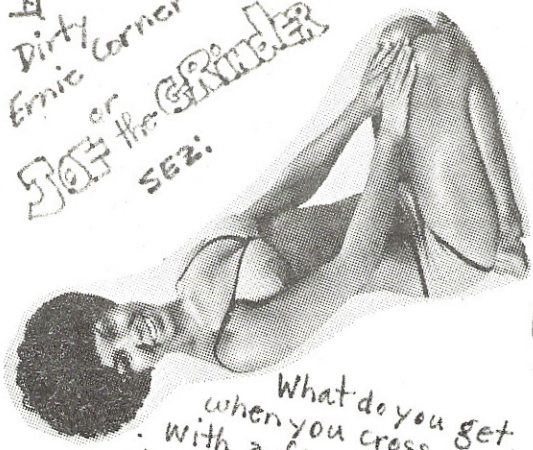 Dirty
Ernie Corner
or
JOE the GRinder
SEZ:
What do you get
when you cross
with a